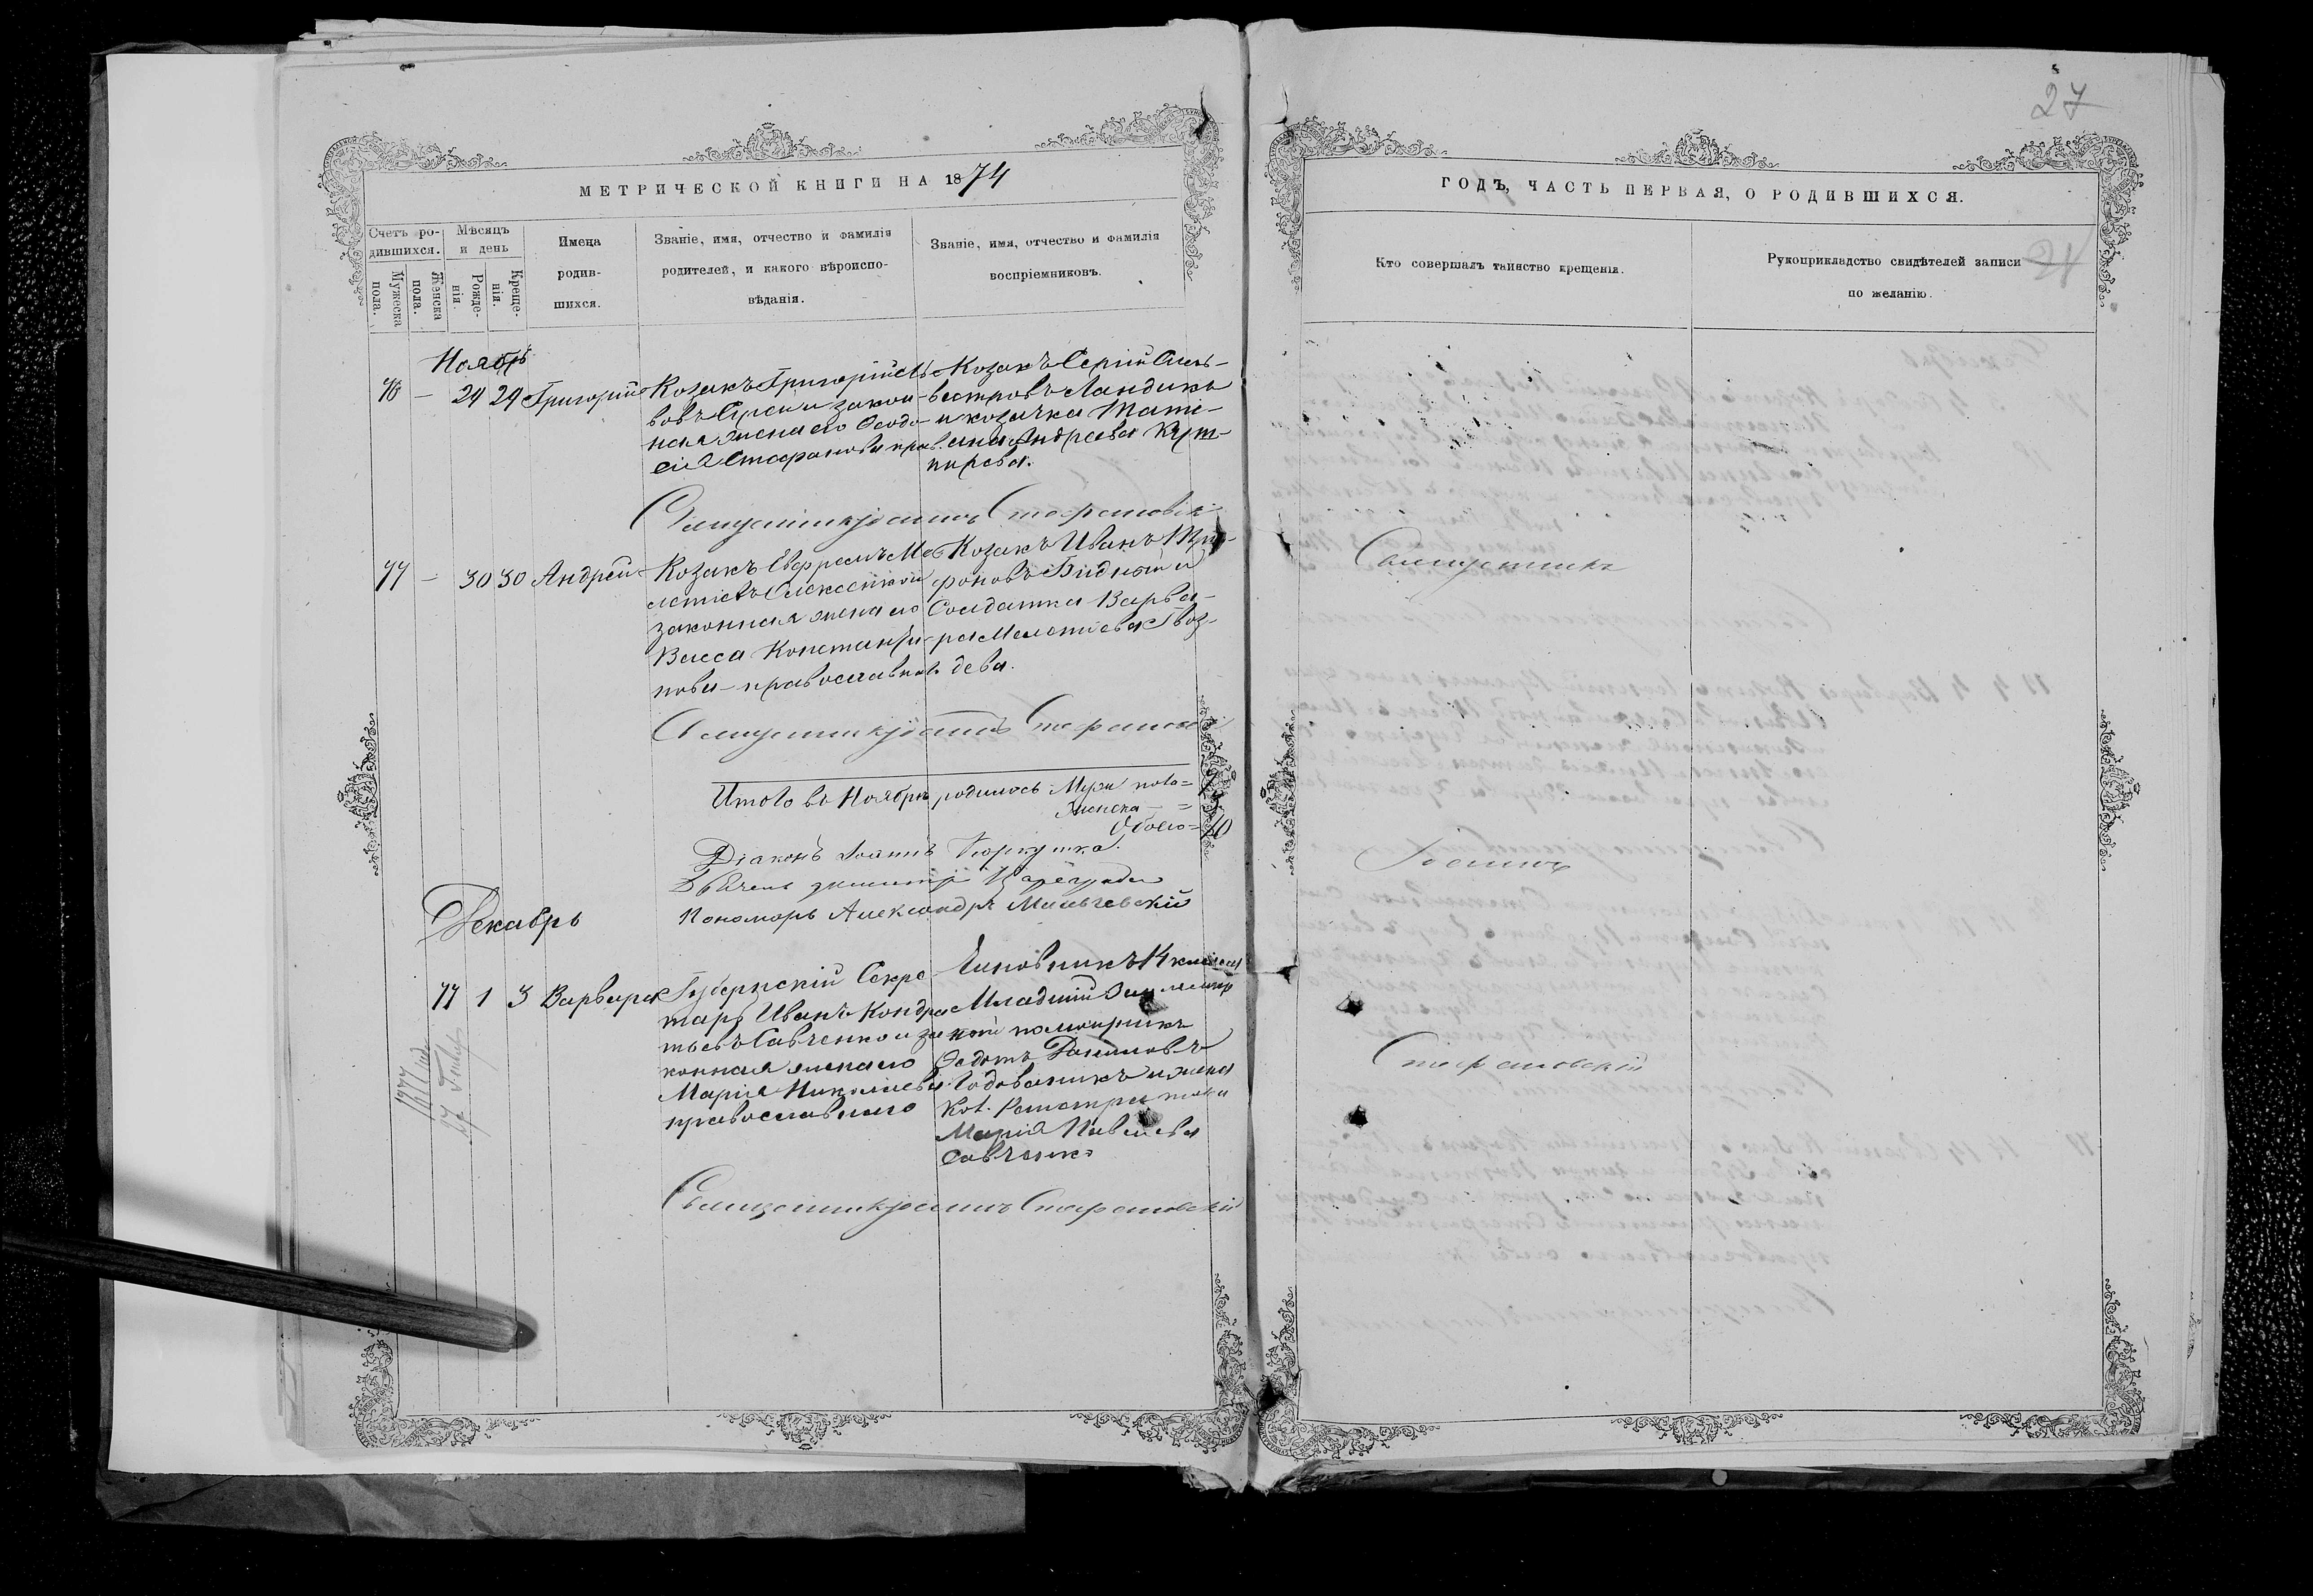 27
МЕТРИЧЕСКОЙ КНИГИ НА 1874
ГОДЪ, ЧАСТЬ ПЕРВАЯ, О РОДИВШИХСЯ.
Счетъ ро-
дившихся.
Мужеска
пола.
Женска
пола.
Мѣсяцъ
и день
Рожде-
нія
Креще-
нія.
Имена
родив-
шихся.
Званіе, имя, отчество и фамилія
родителей, и какого вѣроиспо-
вѣданія.
Званіе, имя, отчество и фамилія
воспріемниковъ.
Кто совершалъ таинство крещенія.
Рукоприкладство свидѣтелей записи
по желанію.
24
Ноябрь
76 — 29 29 Григорій
Козакъ Григорій
вовъ и закон-
ная жена его Феодо-
сія Стефанова прав.
Козакъ Сергій Силь-
вестровъ Ландикъ
и козачка Татіа-
на Андреева
пирева.
Священникъ Іоаннъ Стефановскій
77 — 30 30 Андрей
Козакъ Евфремъ Ме-
летіевъ и
законная жена его
Васса Константи-
нова – православнаго
Козакъ Иванъ Три-
фоновъ Бидный и
Солдатка Варва-
ра Мелетіева Гвоз-
дева.
Священникъ Іоаннъ Стефановскій
Итого въ Ноябрѣ родилось Муж пола=
Женска — =
Обоего = 10
Діаконъ Іоаннъ
Пономарь Александръ
Декабрь
77 1 3 Варвара
Губернскій Секре-
тарь Иванъ Кондра-
тьевъ Савченко и за-
конная жена его
Марія Николаева
православнаго
Чиновникъ 14 класса
Младшій Землемѣр
ной помощникъ
Федотъ Даниловъ
Годованикъ и жена
Кол. Регистратора
Марія Павлова
Савченко
1877 года
27 Генв.
Священникъ Іоаннъ Стефановскій
Священникъ
Іоаннъ
Стефановскій